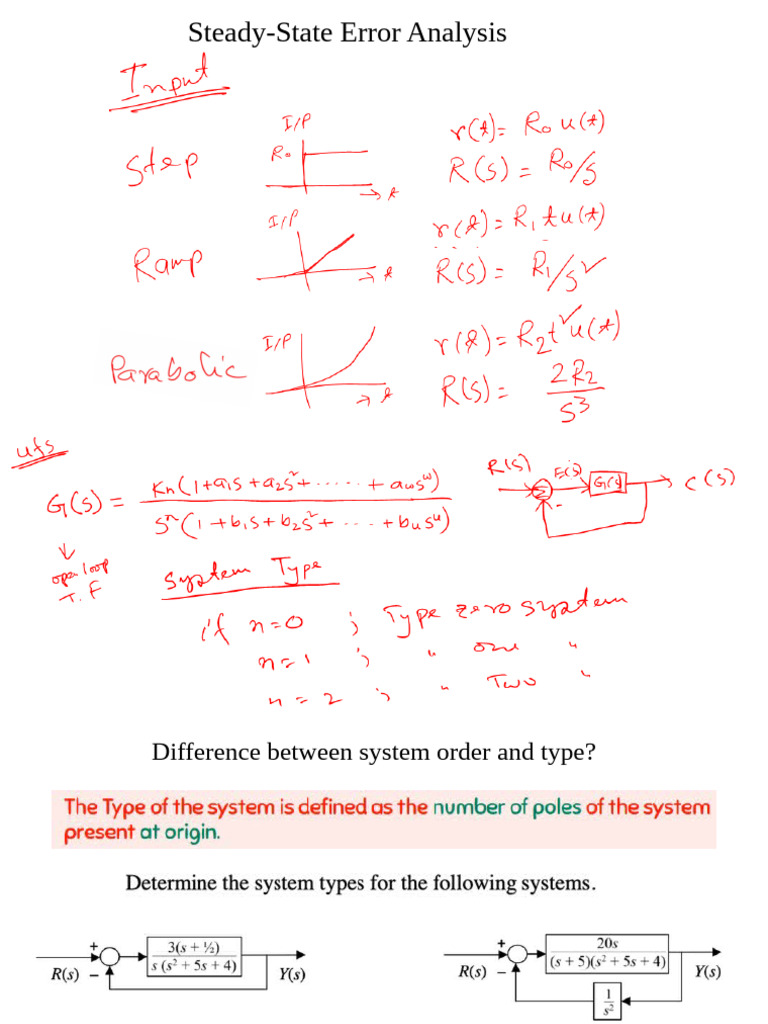 Steady-State Error Analysis
Input
Step
I/P
R₀
t
r(t) = R₀ u(t)
R(s) = R₀/s
Ramp
I/P
t
r(t) = R₁ t u(t)
R(s) = R₁/s²
Parabolic
I/P
t
r(t) = R₂ t² u(t)
R(s) = 2R₂/s³
ufs
G(s) = Kn(1+a₁s+a₂s²+.....+aωs^ω) / sⁿ(1+b₁s+b₂s²+...+bᵤsᵘ)
R(s) Σ - E(s) G(s) C(s)
open loop
T.F
System Type
if n=0 ; Type zero system
n=1 ; " one "
n=2 ; " Two "
Difference between system order and type?
The Type of the system is defined as the number of poles of the system
present at origin.
Determine the system types for the following systems.
R(s) + − 3(s + ½) / s (s² + 5s + 4) Y(s)
R(s) + − 20s / (s + 5)(s² + 5s + 4) Y(s)
1/s²